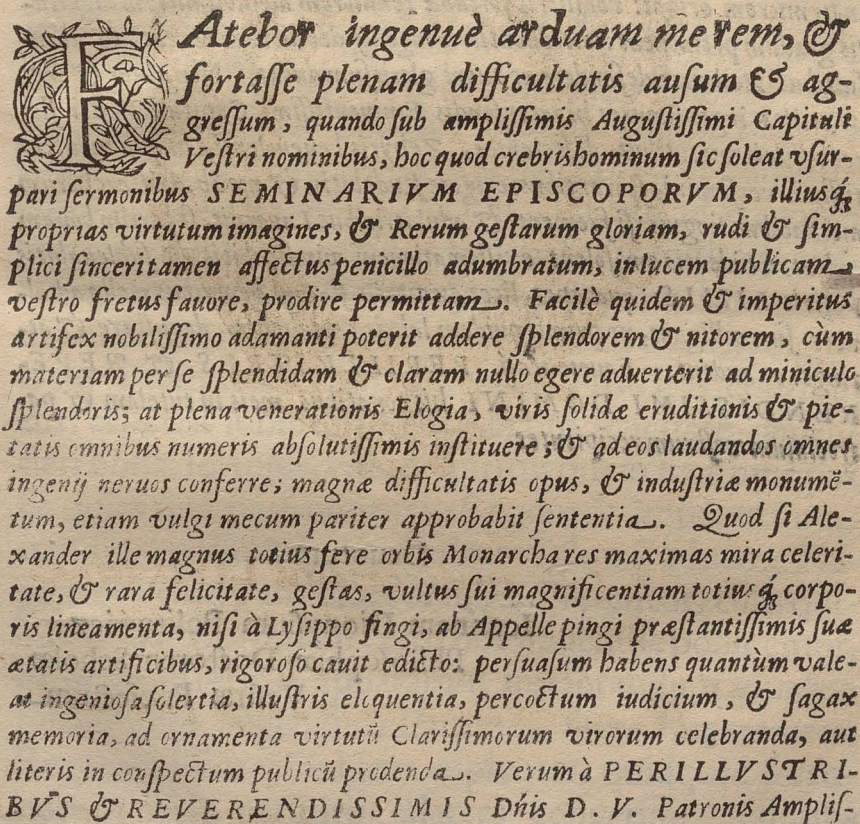 FAtebor ingenuè arduam me rem, &
fortaſſe plenam difficultatis auſum & ag-
greſſum, quando ſub ampliſſimis Auguſtiſſimi Capituli
Veſtri nominibus, hoc quod crebris hominum ſic ſoleat vſur-
pari ſermonibus SEMINARIVM EPISCOPORVM, illiusq́;
proprias virtutum imagines, & Rerum geſtarum gloriam, rudi & ſim-
plici ſinceri tamen affectus penicillo adumbratum, in lucem publicam
veſtro fretus fauore, prodire permittam. Facilè quidem & imperitus
artifex nobiliſſimo adamanti poterit addere ſplendorem & nitorem, cùm
materiam per ſe ſplendidam & claram nullo egere aduerterit ad miniculo
ſplendoris; at plena venerationis Elogia, viris ſolidæ eruditionis & pie-
tatis omnibus numeris abſolutiſſimis inſtituere; & ad eos laudandos omnes
ingenij neruos conferre; magnæ difficultatis opus, & induſtriæ monumẽ-
tum, etiam vulgi mecum pariter approbabit ſententia. Quod ſi Ale-
xander ille magnus totius fere orbis Monarcha res maximas mira celeri-
tate, & rara felicitate, geſtas, vultus ſui magnificentiam totiusq́; corpo-
ris lineamenta, niſi à Lyſippo fingi, ab Appelle pingi præſtantiſſimis ſuæ
ætatis artificibus, rigoroſo cauit edicto: perſuaſum habens quantùm vale-
at ingenioſa ſolertia, illuſtris eloquentia, percoctum iudicium, & ſagax
memoria, ad ornamenta virtutũ Clariſſimorum virorum celebranda, aut
literis in conſpectum publicũ prodenda. Verum à PERILLVSTRI-
BVS & REVERENDISSIMIS Dńis D. V. Patronis Ampliſ-